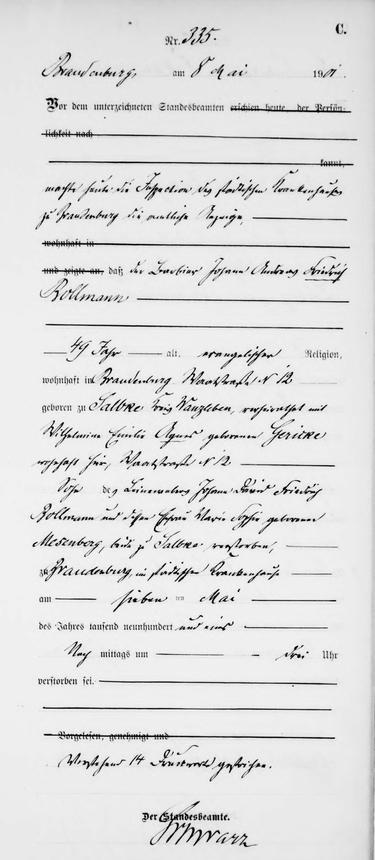 C.
Nr. 335.
Brandenburg, am 8 Mai 1901.
Vor dem unterzeichneten Standesbeamten erschien heute, der Persön-
lichkeit nach
kannt,
machte heute die Inspection des städtischen Krankenhauses
zu Brandenburg die amtliche Anzeige,
wohnhaft in
und zeigte an, daß der Barbier Johann Andreas Friedrich
Bollmann
49 Jahr alt, evangelischer Religion,
wohnhaft in Brandenburg N 12
geboren zu Salbke Kreis Wanzleben, verheirathet mit
Wilhelmine Emilie Agnes geborenen Gericke
wohnhaft hier, N 12
Sohn des Johann David Friedrich
Bollmann und dessen Ehefrau Marie Sophie geborenen
Mesenberg, beide zu Salbke verstorben,
zu Brandenburg, im städtischen Krankenhause
am sieben ten Mai
des Jahres tausend neunhundert und eins
Nach mittags um drei Uhr
verstorben sei.
Vorgelesen, genehmigt und
Vorstehend 14 Druckworte gestrichen.
Der Standesbeamte.
Schwarz